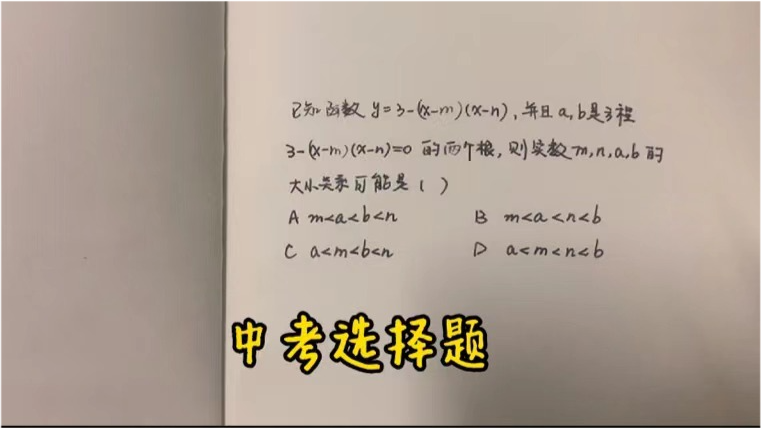 已知函数 y=3-(x-m)(x-n), 并且a,b是方程
3-(x-m)(x-n)=0 的两个根, 则实数m,n,a,b的
大小关系可能是 ( )
A m<a<b<n B m<a<n<b
C a<m<b<n D a<m<n<b
中考选择题